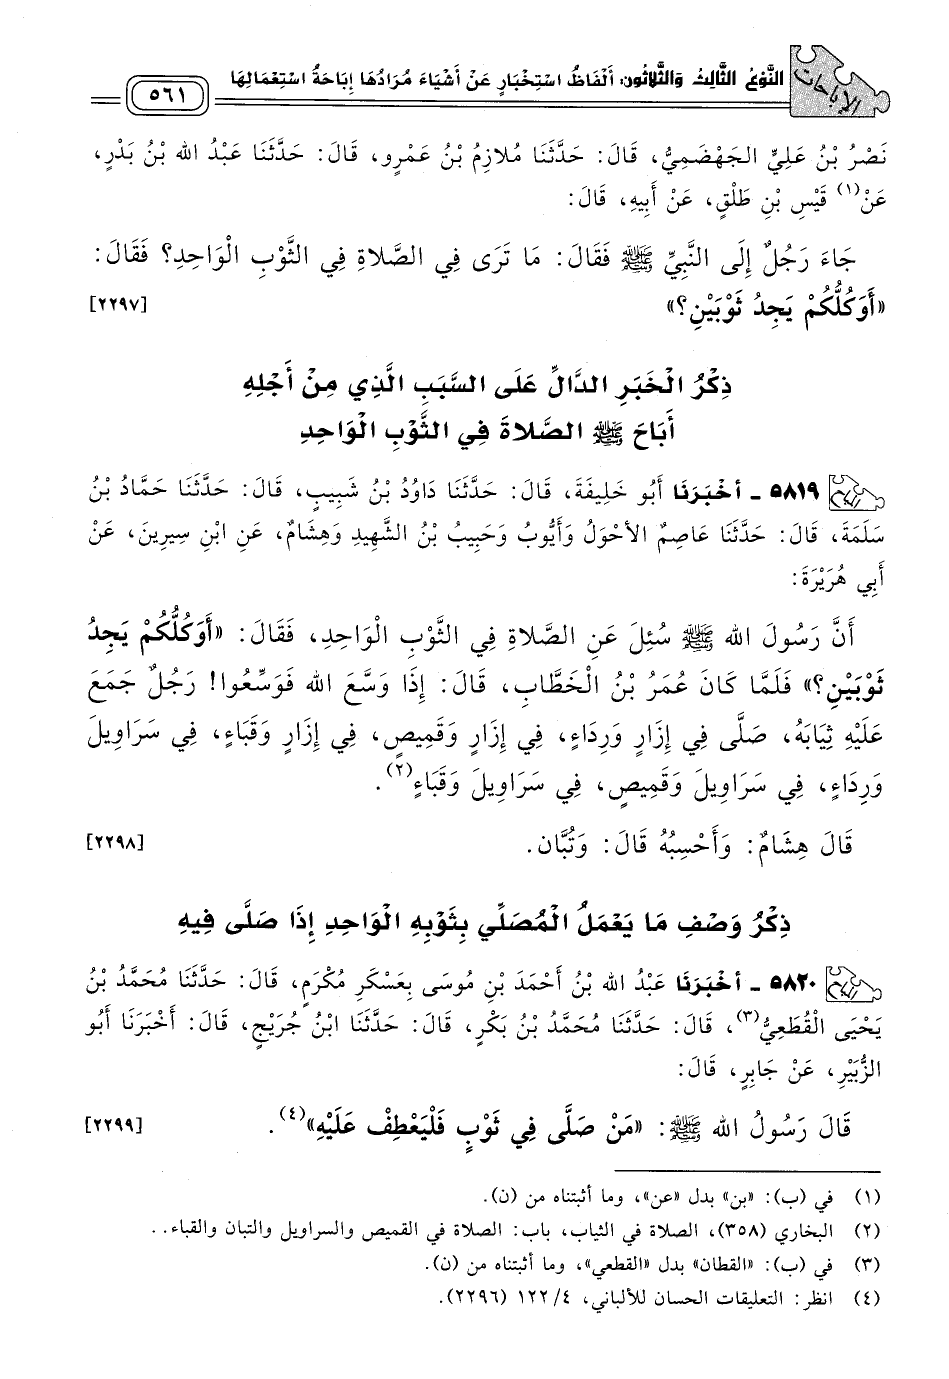 الإباحات
النَّوْعُ الثَّالِثُ وَالثَّلَاثُونَ: أَلْفَاظُ اسْتِخْبَارٍ عَنْ أَشْيَاءَ مُرَادُهَا إِبَاحَةُ اسْتِعْمَالِهَا
٥٦١
نَصْرُ بْنُ عَلِيٍّ الجَهْضَمِيُّ، قَالَ: حَدَّثَنَا مُلازِمُ بْنُ عَمْرٍو، قَالَ: حَدَّثَنَا عَبْدُ الله بْنُ بَدْرٍ،
عَنْ(١) قَيْسِ بْنِ طَلْقٍ، عَنْ أَبِيهِ، قَالَ:
جَاءَ رَجُلٌ إِلَى النَّبِيِّ ﷺ فَقَالَ: مَا تَرَى فِي الصَّلاةِ فِي الثَّوْبِ الْوَاحِدِ؟ فَقَالَ:
«أَوَكُلُّكُمْ يَجِدُ ثَوْبَيْنِ؟» [٢٢٩٧]
ذِكْرُ الْخَبَرِ الدَّالِّ عَلَى السَّبَبِ الَّذِي مِنْ أَجْلِهِ
أَبَاحَ ﷺ الصَّلاةَ فِي الثَّوْبِ الْوَاحِدِ
٥٨١٩ ـ أخْبَرَنَا أَبُو خَلِيفَةَ، قَالَ: حَدَّثَنَا دَاوُدُ بْنُ شَبِيبٍ، قَالَ: حَدَّثَنَا حَمَّادُ بْنُ
سَلَمَةَ، قَالَ: حَدَّثَنَا عَاصِمٌ الأَحْوَلُ وَأَيُّوبُ وَحَبِيبُ بْنُ الشَّهِيدِ وَهِشَامٌ، عَنِ ابْنِ سِيرِينَ، عَنْ
أَبِي هُرَيْرَةَ:
أَنَّ رَسُولَ الله ﷺ سُئِلَ عَنِ الصَّلاةِ فِي الثَّوْبِ الْوَاحِدِ، فَقَالَ: «أَوَكُلُّكُمْ يَجِدُ
ثَوْبَيْنِ؟» فَلَمَّا كَانَ عُمَرُ بْنُ الْخَطَّابِ، قَالَ: إِذَا وَسَّعَ الله فَوَسِّعُوا! رَجُلٌ جَمَعَ
عَلَيْهِ ثِيَابَهُ، صَلَّى فِي إِزَارٍ وَرِدَاءٍ، فِي إِزَارٍ وَقَمِيصٍ، فِي إِزَارٍ وَقَبَاءٍ، فِي سَرَاوِيلَ
وَرِدَاءٍ، فِي سَرَاوِيلَ وَقَمِيصٍ، فِي سَرَاوِيلَ وَقَبَاءٍ(٢).
قَالَ هِشَامٌ: وَأَحْسِبُهُ قَالَ: وَتُبَّان. [٢٢٩٨]
ذِكْرُ وَصْفِ مَا يَعْمَلُ الْمُصَلِّي بِثَوْبِهِ الْوَاحِدِ إِذَا صَلَّى فِيهِ
٥٨٢٠ ـ أخْبَرَنَا عَبْدُ الله بْنُ أَحْمَدَ بْنِ مُوسَى بِعَسْكَرِ مُكْرَمٍ، قَالَ: حَدَّثَنَا مُحَمَّدُ بْنُ
يَحْيَى الْقُطَعِيُّ(٣)، قَالَ: حَدَّثَنَا مُحَمَّدُ بْنُ بَكْرٍ، قَالَ: حَدَّثَنَا ابْنُ جُرَيْجٍ، قَالَ: أَخْبَرَنَا أَبُو
الزُّبَيْرِ، عَنْ جَابِرٍ، قَالَ:
قَالَ رَسُولُ الله ﷺ: «مَنْ صَلَّى فِي ثَوْبٍ فَلْيَعْطِفْ عَلَيْهِ»(٤). [٢٢٩٩]
(١) في (ب): «بن» بدل «عن»، وما أثبتناه من (ن).
(٢) البخاري (٣٥٨)، الصلاة في الثياب، باب: الصلاة في القميص والسراويل والتبان والقباء..
(٣) في (ب): «القطان» بدل «القطعي»، وما أثبتناه من (ن).
(٤) انظر: التعليقات الحسان للألباني، ٤/ ١٢٢ (٢٢٩٦).